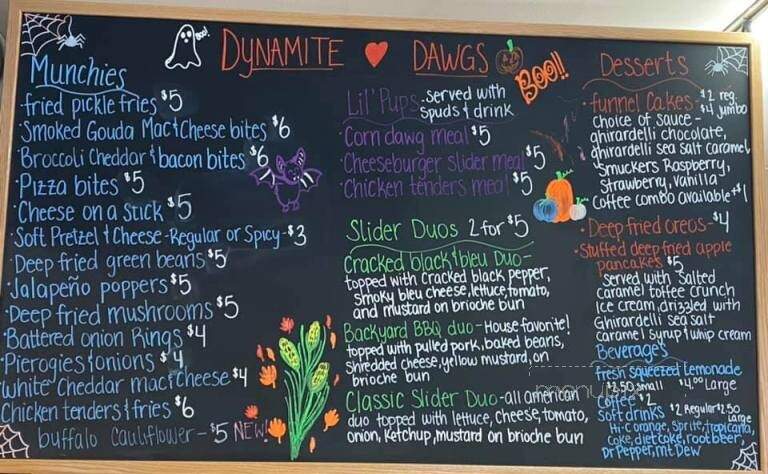 Boo!
DYNAMITE DAWGS
BOO!!
Munchies
fried pickle fries $5
Smoked Gouda Mac & Cheese bites $6
Broccoli Cheddar & bacon bites $6
Pizza bites $5
Cheese on a Stick $5
Soft Pretzel & Cheese-Regular or Spicy-$3
Deep fried green beans $5
Jalapeño poppers $5
Deep fried mushrooms $5
Battered onion Rings $4
Pierogies & onions $4
White Cheddar mac & Cheese $4
Chicken tenders & fries $6
buffalo Cauliflower-$5 NEW!
Lil' Pups-Served with
Spuds & drink
Corn dawg meal $5
Cheeseburger slider meal $5
Chicken tenders meal $5
Slider Duos 2 for $5
Cracked black & bleu Duo-
topped with Cracked black pepper,
smoky bleu cheese, lettuce, tomato,
and mustard on brioche bun
Backyard BBQ duo-House favorite!
topped with pulled pork, baked beans,
shredded cheese, yellow mustard, on
brioche bun
Classic Slider Duo-all american
duo topped with lettuce, Cheese, tomato,
onion, Ketchup, mustard on brioche bun
Desserts
funnel Cakes-$2 reg.
$4 jumbo
choice of sauce-
ghirardelli chocolate,
ghirardelli sea salt caramel
Smuckers Raspberry,
Strawberry, Vanilla
Coffee combo available +$1
Deep fried oreos-$4
Stuffed deep fried apple
pancakes $5
Served with Salted
caramel toffee crunch
Ice cream, drizzled with
Ghirardelli Sea salt
caramel Syrup & whip cream
Beverages
fresh Squeezed Lemonade
$2.50 small $4.00 Large
Coffee $2
Soft drinks $2 Regular $2.50
Large
Hi-C orange, Sprite, tropicana,
Coke, diet coke, root beer,
Dr Pepper, mt Dew